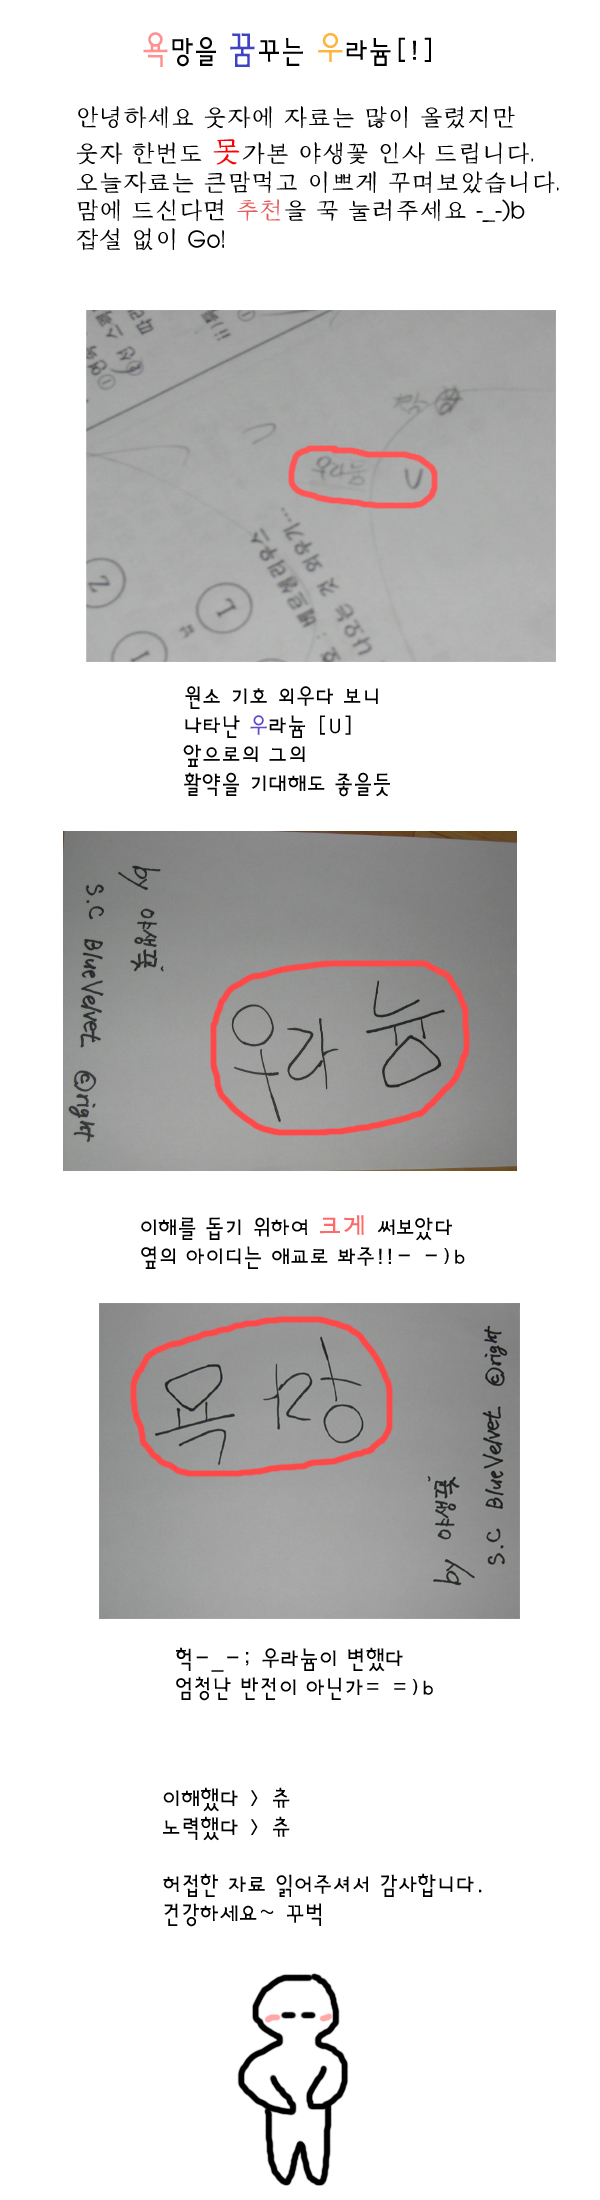 욕망을 꿈꾸는 우라늄[!]
안녕하세요 웃자에 자료는 많이 올렸지만
웃자 한번도 못가본 야생꽃 인사 드립니다.
오늘자료는 큰맘먹고 이쁘게 꾸며보았습니다.
맘에 드신다면 추천을 꾹 눌러주세요 -_-)b
잡설 없이 Go!
우라늄 U
원소 기호 외우다 보니
나타난 우라늄 [U]
앞으로의 그의
활약을 기대해도 좋을듯
우라늄
by 야생꽃
S.C BlueVelvet ©right
이해를 돕기 위하여 크게 써보았다
옆의 아이디는 애교로 봐주!!- -)b
욕라우
by 야생꽃
S.C BlueVelvet ©right
헉-_-; 우라늄이 변했다
엄청난 반전이 아닌가= =)b
이해했다 > 츄
노력했다 > 츄
허접한 자료 읽어주셔서 감사합니다.
건강하세요~ 꾸벅